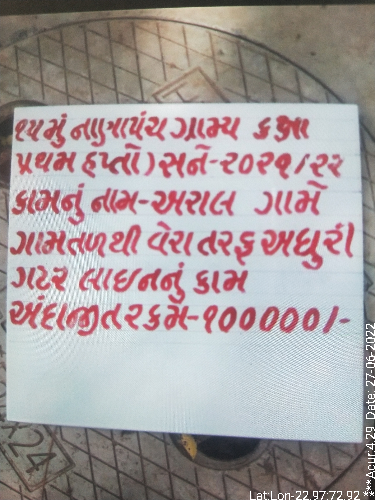 ૧૫ મું નાણાપંચ ગ્રામ્ય કક્ષા
પ્રથમ હપ્તો) સને-૨૦૨૧/૨૨
કામનું નામ-અરાલ ગામે
ગામતળથી વેરા તરફ અધુરી
ગટર લાઇનનું કામ
અંદાજીત રકમ-૧૦૦૦૦૦/-
Lat:Lon-22.97:72.92
***Acur:4.29 Date: 27-06-2022